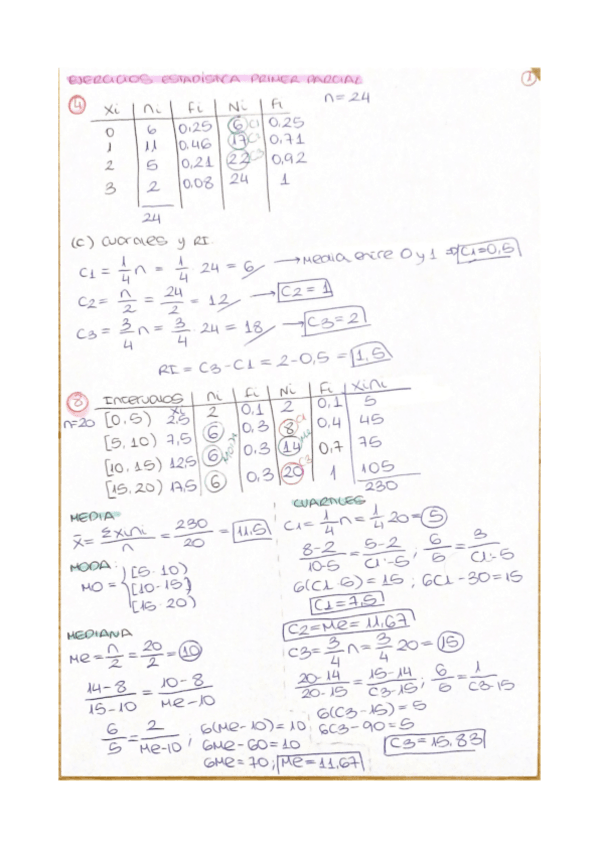 EJERCICIOS ESTADÍSTICA PRIMER PARCIAL 1
4 xi ni fi Ni Fi n=24
0 6 0,25 6 C1 0,25
1 11 0,46 17 C2 0,71
2 5 0,21 22 C3 0,92
3 2 0,08 24 1
24
(c) cuartiles y RI.
C1 = 1/4 n = 1/4 · 24 = 6 → Media entre 0 y 1 ⇒ C1=0,5
C2 = n/2 = 24/2 = 12 → C2 = 1
C3 = 3/4 n = 3/4 · 24 = 18 → C3 = 2
RI = C3 - C1 = 2 - 0,5 = 1,5
8 Intervalos xi ni fi Ni Fi xini
n=20 [0,5) 2,5 2 0,1 2 0,1 5
[5,10) 7,5 6 0,3 8 C1 0,4 45
[10,15) 12,5 6 0,3 14 Me 0,7 75
[15,20) 17,5 6 0,3 20 C3 1 105
Moda
230
MEDIA
x̄ = Σxini/n = 230/20 = 11,5
MODA:
MO = { [5-10)
[10-15)
[15-20)
MEDIANA
Me = n/2 = 20/2 = 10
14-8/15-10 = 10-8/Me-10
6/5 = 2/Me-10 ; 6(Me-10) = 10
6Me-60 = 10
6Me = 70 ; Me = 11,67
CUARTILES
C1 = 1/4 n = 1/4 20 = 5
8-2/10-5 = 5-2/C1-5 ; 6/5 = 3/C1-5
6(C1-5) = 15 ; 6C1-30 = 15
C1 = 7,5
C2 = Me = 11,67
C3 = 3/4 n = 3/4 20 = 15
20-14/20-15 = 15-14/C3-15 ; 6/5 = 1/C3-15
6(C3-15) = 5
6C3-90 = 5
C3 = 15,83